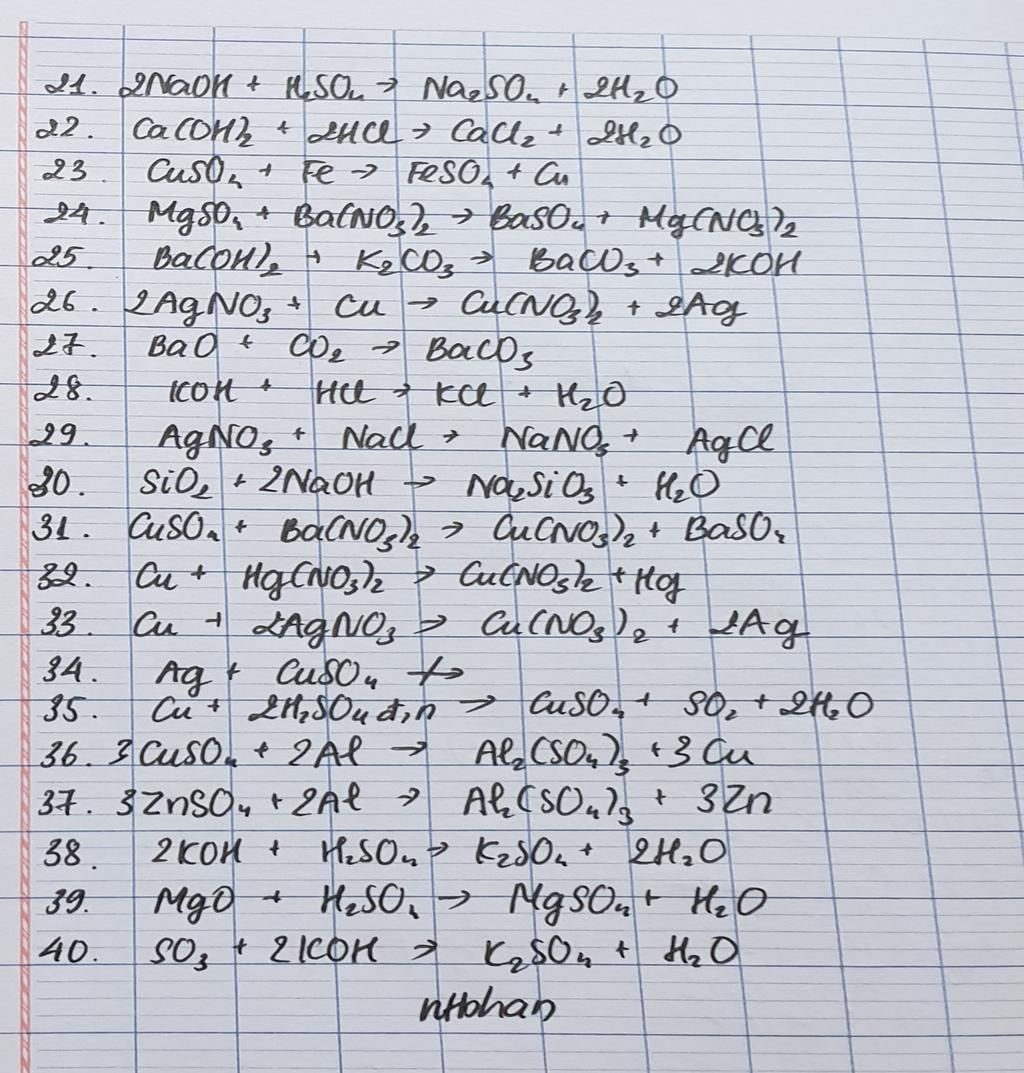 21. 2NaOH + H₂SO₄ → Na₂SO₄ + 2H₂O
22. Ca(OH)₂ + 2HCl → CaCl₂ + 2H₂O
23 CuSO₄ + Fe → FeSO₄ + Cu
24. MgSO₄ + Ba(NO₃)₂ → BaSO₄ + Mg(NO₃)₂
25. Ba(OH)₂ + K₂CO₃ → BaCO₃ + 2KOH
26. 2AgNO₃ + Cu → Cu(NO₃)₂ + 2Ag
27. BaO + CO₂ → BaCO₃
28. KOH + HCl → KCl + H₂O
29. AgNO₃ + NaCl → NaNO₃ + AgCl
30. SiO₂ + 2NaOH → Na₂SiO₃ + H₂O
31. CuSO₄ + Ba(NO₃)₂ → Cu(NO₃)₂ + BaSO₄
32. Cu + Hg(NO₃)₂ → Cu(NO₃)₂ + Hg
33. Cu + 2AgNO₃ → Cu(NO₃)₂ + 2Ag
34. Ag + CuSO₄ ↛
35. Cu + 2H₂SO₄ đ,n → CuSO₄ + SO₂ + 2H₂O
36. 3CuSO₄ + 2Al → Al₂(SO₄)₃ + 3Cu
37. 3ZnSO₄ + 2Al → Al₂(SO₄)₃ + 3Zn
38. 2KOH + H₂SO₄ → K₂SO₄ + 2H₂O
39. MgO + H₂SO₄ → MgSO₄ + H₂O
40. SO₃ + 2KOH → K₂SO₄ + H₂O